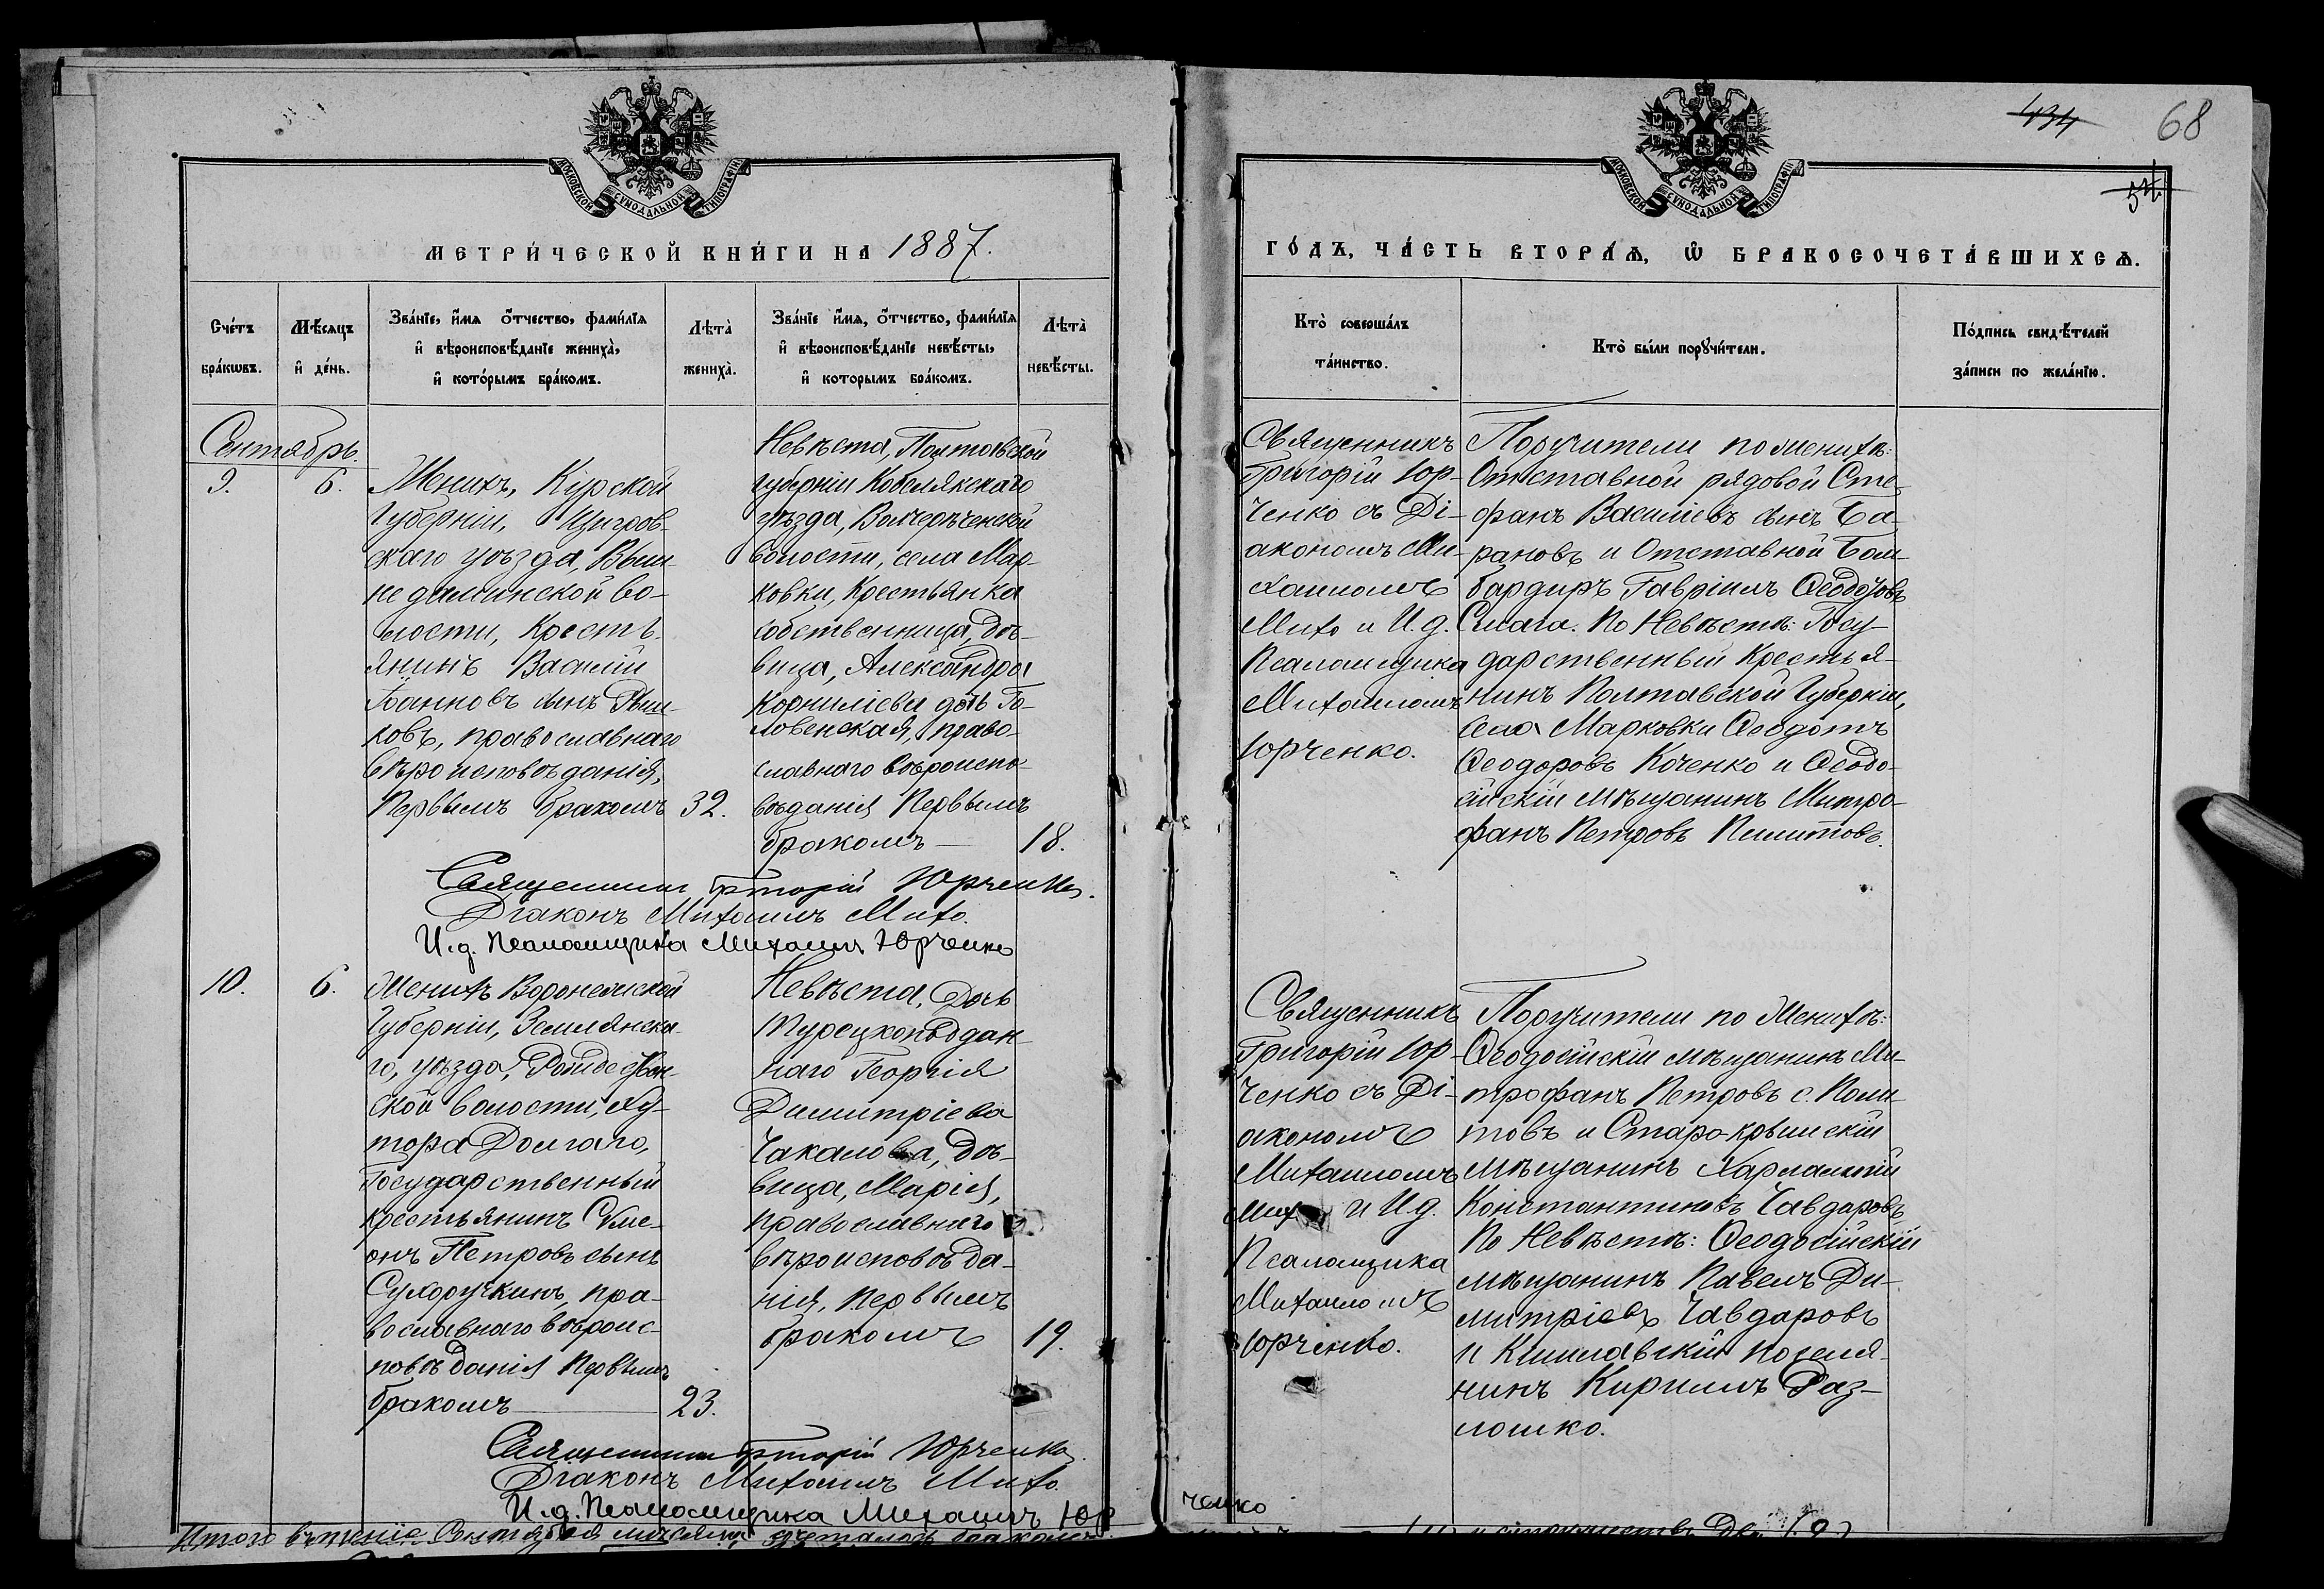 МОСКОВСКОЙ СѴНОДАЛЬНОЙ ТИПОГРАФІИ
МЕТРИ́ЧЕСКОЙ КНИ́ГИ НА 1887.
Сче́тъ бра́кѡвъ.
Мѣ́сяцъ и҆ де́нь.
Зва́нїе, и҆́мя ѻ҆́тчество, фами́лїя
и҆ вѣроисповѣ́данїе жениха̀,
и҆ кото́рымъ бра́комъ.
Лѣта̀ жениха̀.
Зва́нїе и҆́мя, ѻ҆́тчество, фами́лїя
и҆ вѣроисповѣ́данїе невѣ́сты,
и҆ которымъ бра́комъ.
Лѣта̀ невѣ́сты.
Сентябрь.
9.
6.
Женихъ, Курской
Губерніи, Щигров-
скаго уѣзда, Выш-
недолинской во-
лости, Кресть-
янинъ Василій
Іоанновъ сынъ Рыш-
ковъ, православнаго
вѣроисповѣданія,
Первымъ бракомъ
32.
Невѣста, Полтавской
губерніи Кобелякскаго
уѣзда,
волости, села Мар-
ковки, Крестьянка
собственница, дѣ-
вица, Александра
Корниліева дочь Го-
ловенская, право-
славнаго вѣроиспо-
вѣданія Первымъ
бракомъ
18.
Священникъ Григорій Юрченко.
Діаконъ Михаилъ Михо.
И.д. Псаломщика Михаилъ Юрченко
10.
6.
Женихъ Воронежской
Губерніи, Землянска-
го, уѣзда, Рождествен-
ской волости, ху-
тора Долгаго,
Государственный
крестьянинъ Симе-
онъ Петровъ сынъ
Сухоручкинъ, пра-
вославнаго вѣроис-
повѣданія Первымъ
бракомъ
23.
Невѣста, Дочь
Турецкоподдан-
наго Георгія
Димитріева
Чакалова, дѣ-
вица, Марія,
православнаго
вѣроисповѣда-
нія, первымъ
бракомъ
19.
Священникъ Григорій Юрченко.
Діаконъ Михаилъ Михо
И.д. Псаломщика Михаилъ Юр
ченко
Итого въ теченіе Сентября мѣсяца сочеталось бракомъ
434
68
54
МОСКОВСКОЙ СѴНОДАЛЬНОЙ ТИПОГРАФІИ
ГО́ДЪ, ЧА́СТЬ ВТОРА́Я, Ѽ БРАКОСОЧЕТА́ВШИХСЯ.
Кто̀ соверша́лъ та́инство.
Кто̀ бы́ли порꙋчи́тели.
По́дпись свидѣ́телей
за́писи по жела́нїю.
Священникъ
Григорій Юр-
ченко съ Ді-
акономъ Ми-
хаиломъ
Михо и И.д.
Псаломщика
Михаиломъ
Юрченко.
Поручители по женихѣ:
Отставной рядовой Сте-
фанъ Василіевъ сынъ Ба-
рановъ и Отставной Бом-
бардиръ Гавріилъ Ѳеодоровъ
Смага. По Невѣстѣ: Госу-
дарственный Крестья-
нинъ Полтавской Губерніи,
села Марковки Ѳеодотъ
Ѳеодоровъ Коченко и Ѳеодо-
сійскій мѣщанинъ Митро-
фанъ Петровъ
Священникъ
Григорій Юр-
ченко съ Ді-
акономъ
Михаиломъ
Михо и И.д.
Псаломщика
Михаиломъ
Юрченко.
Поручители по Женихѣ:
Ѳеодосійскій мѣщанинъ Ми-
трофанъ Петровъ с.
и Старо-крымскій
мѣщанинъ Харлампій
Константиновъ Чавдаровъ
По Невѣстѣ: Ѳеодосійскій
мѣщанинъ Павелъ Ди-
митріевъ Чавдаровъ
и Кишлавскій поселя-
нинъ Кириллъ Раз-
ложко.